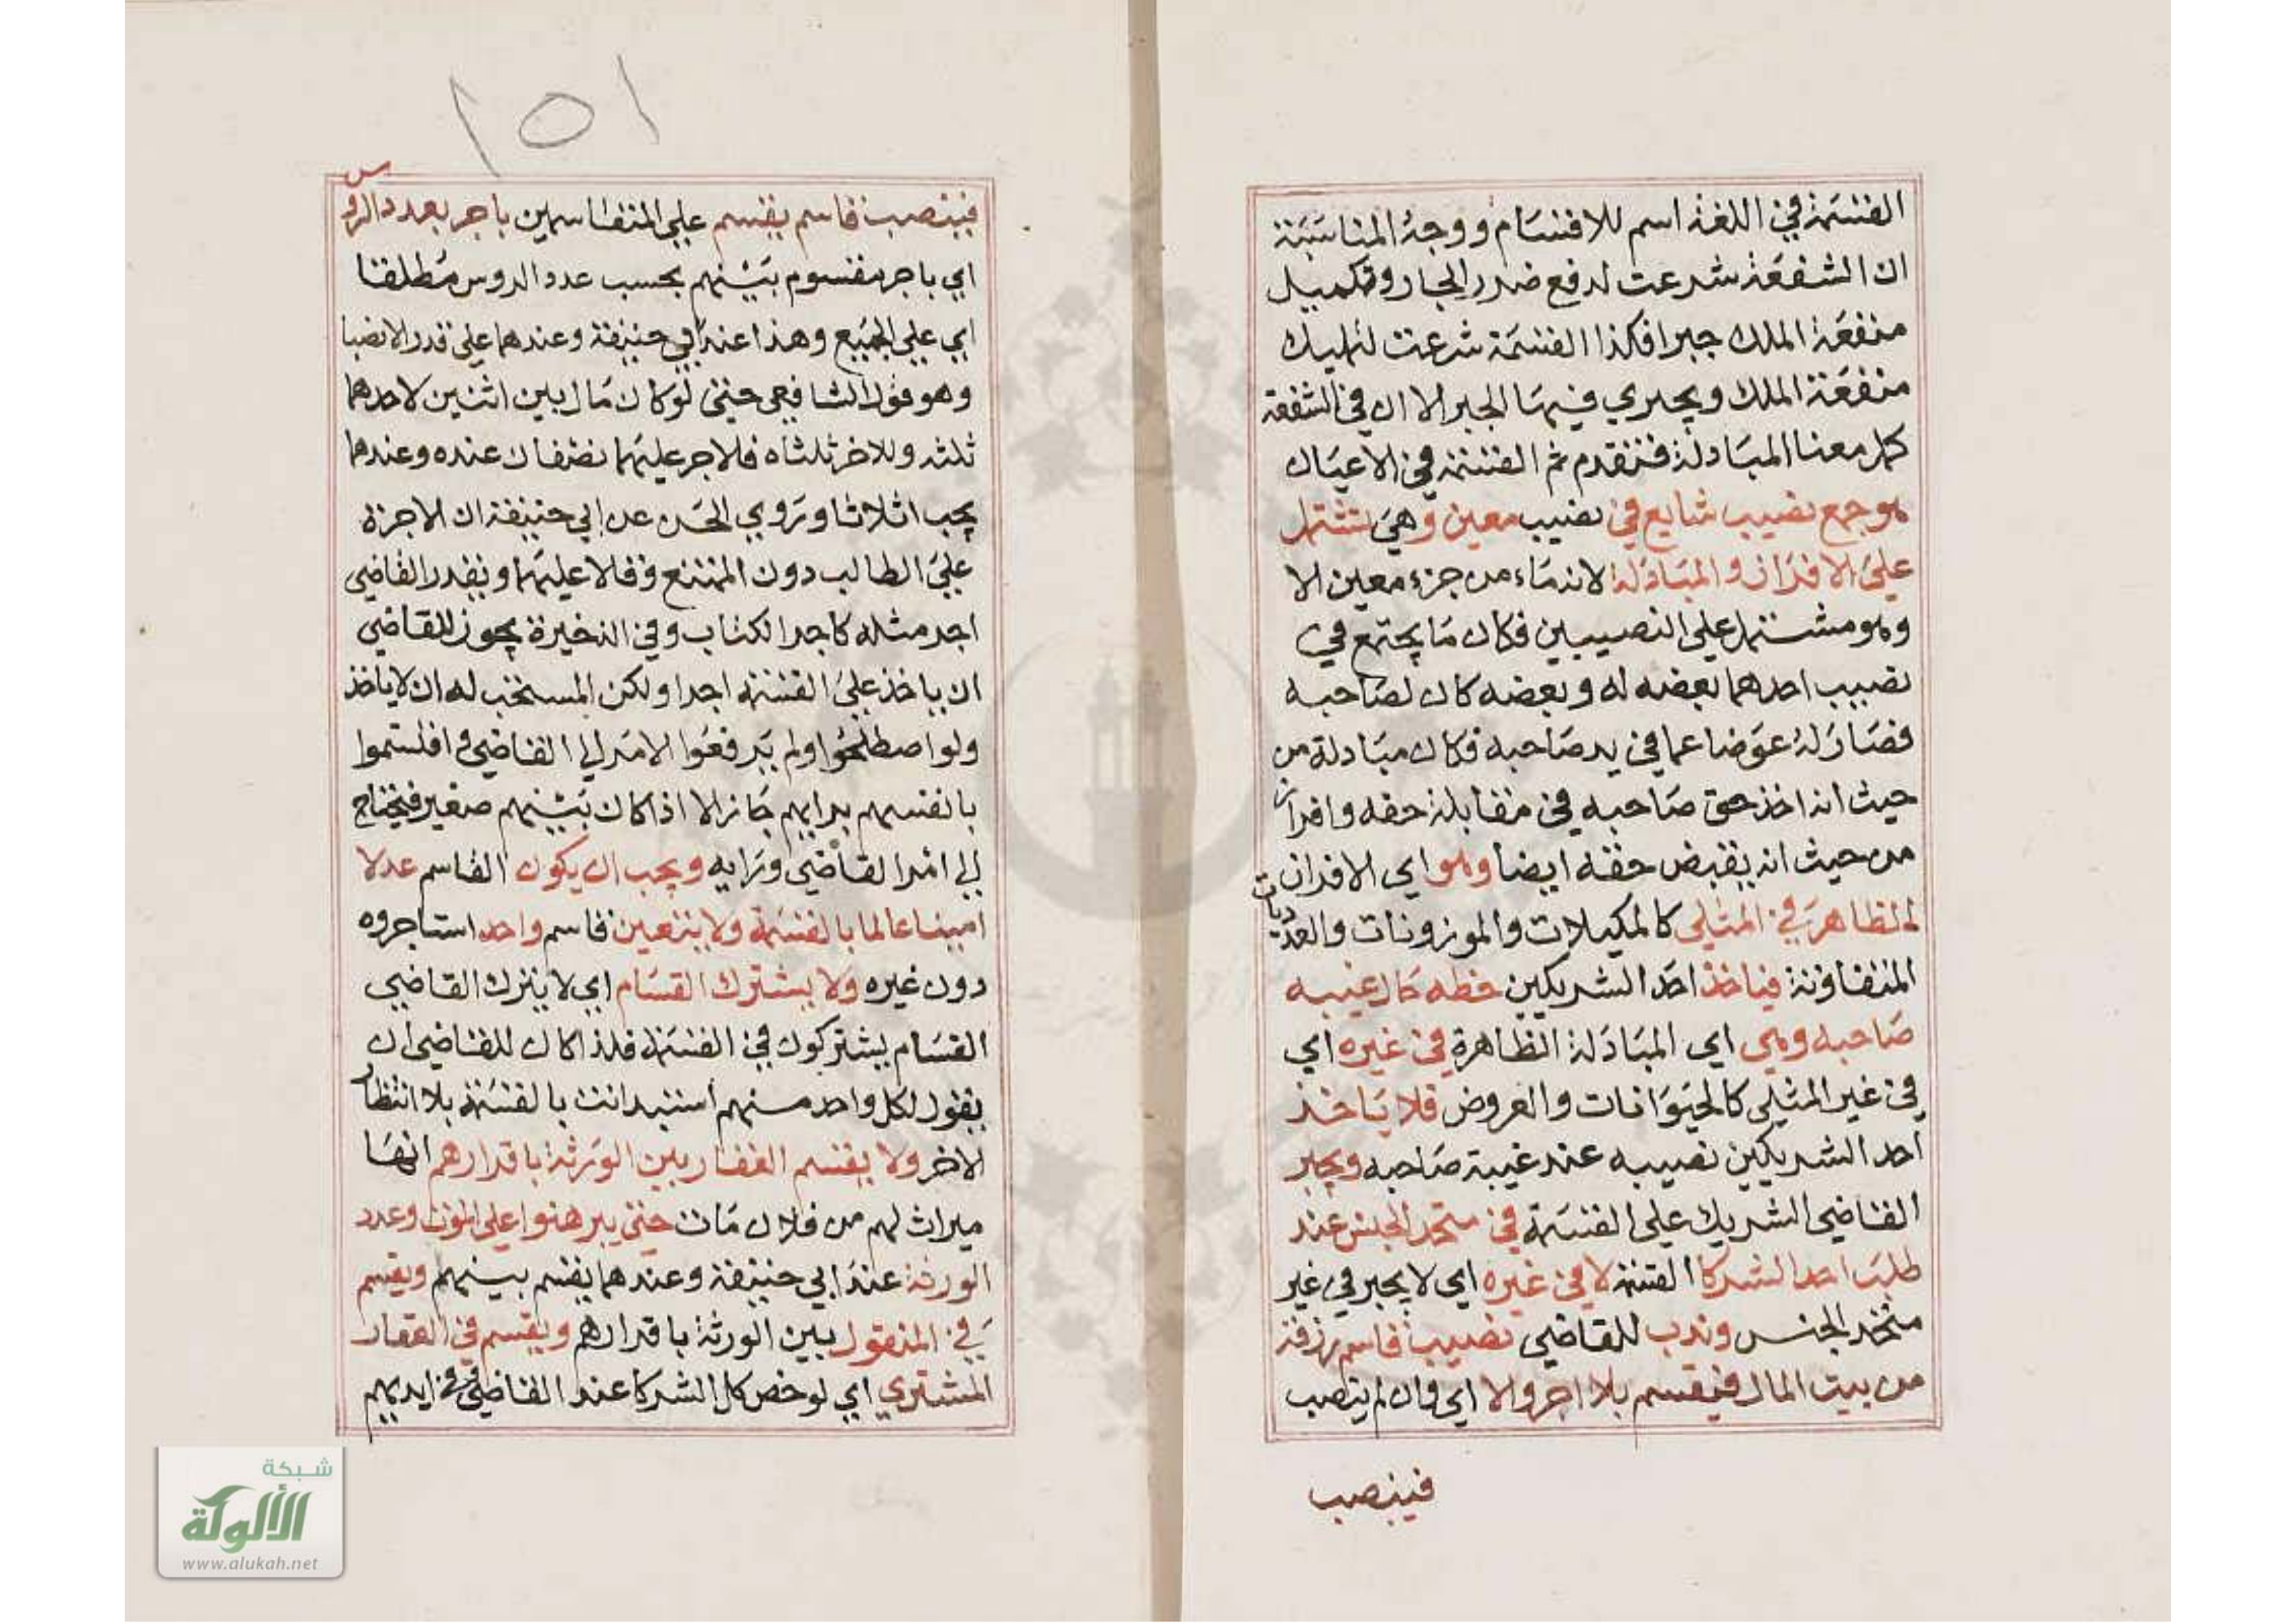 القسمة في اللغة اسم للاقتسام ووجه المناسبة
ان الشفعة شرعت لدفع ضرر الجار وتكميل
منفعة الملك جبرا فكذا القسمة شرعت لتمليك
منفعة الملك ويجري فيها الجبر الا ان في الشفعة
كل معنا المبادلة فتقدم ثم القسمة في الاعيان
هو جمع نصيب شايع في نصيب معين وهي تشتمل
على الافراز والمبادلة لانه ماء من جزء معين الا
وهو مشتمل على النصيبين فكان ما يجتمع في
نصيب احدهما بعضه له وبعضه كان لصاحبه
فصار له عوضا عما في يد صاحبه فكان مبادلة من
حيث انه اخذ حق صاحبه في مقابلة حقه وافراز
من حيث انه يقبض حقه ايضا وهو اي الافراز
الظاهر في المثلي كالمكيلات والموزونات والعدديات
المتفاوتة فياخذ احد الشريكين حظه حال غيبه
صاحبه وهي اي المبادلة الظاهرة في غيره اي
في غير المثلي كالحيوانات والعروض فلا ياخذ
احد الشريكين نصيبه عند غيبة صاحبه ويجبر
القاضي الشريك على القسمة في متحد الجنس عند
طلب احد الشركا القسمة لا في غيره اي لا يجبر في غير
متحد الجنس وندب للقاضي نصيب قاسم رزقه
من بيت المال فيقسم بلا اجر والا اي وان لم ينصب
فينصب
١٥١
فينصب قاسم يقسم على المتقاسمين باجر بعدد الروس
اي باجر مقسوم بينهم بحسب عدد الروس مطلقا
اي على الجميع وهذا عند ابي حنيفة وعندهما على قدر الانصبا
وهو قول الشافعي حتى لو كان مال بين اثنين لاحدهما
ثلثه وللاخر ثلثاه فالاجر عليهما نصفان عنده وعندهما
يجب اثلاثا وروي الحسن عن ابي حنيفة ان الاجرة
على الطالب دون الممتنع وقالا عليهما ويقدر القاضي
اجر مثله كاجر الكتاب وفي الذخيرة يجوز للقاضي
ان ياخذ على القسمة اجرا ولكن المستحب له ان لا ياخذ
ولو اصطلحوا ولم يرفعوا الامر الى القاضي فاقتسموا
بانفسهم برايهم جاز الا اذا كان بينهم صغير فيحتاج
الى امر القاضي ورايه ويجب ان يكون القاسم عدلا
امينا عالما بالقسمة ولا يتعين قاسم واحد استاجروه
دون غيره ولا يشترك القسام اي لا يترك القاضي
القسام يشتركون في القسمة فلذا كان للقاضي ان
يقول لكل واحد منهم استبد انت بالقسمة بلا انتظار
الاخر ولا يقسم العقار بين الورثة باقرارهم انها
ميراث لهم من فلان مات حتى يبرهنوا على الموت وعدد
الورثة عند ابي حنيفة وعندهما يقسم بينهم ويقسم
في المنقول بين الورثة باقرارهم ويقسم في العقار
المشتري اي لو حضر كل الشركا عند القاضي وفي ايديهم
شبكة
الألوكة
www.alukah.net